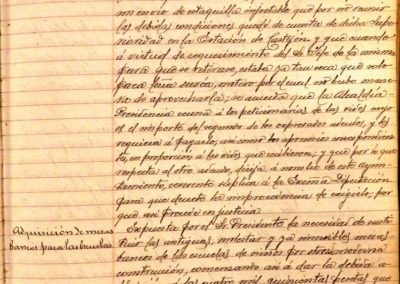 mi envio de estaquilla infestable que por no reunir
las debidas condiciones quedó de cuenta de dicha Supe-
rioridad en la Estación de Castejón; y que cuando
á virtud de requerimiento del Sr. Jefe de la misma
para que se retirara, estaba ya tan seca que solo
para leña servía, motivo por el cual no hubo mane-
ra de aprovecharla; se acuerda que la Alcaldía-
Presidencia reuna á los peticionarios de los vides
el importe del segundo de los expresados adeudos, y les
requiera á pagarlo, así como los apremios correspondien-
tes, en proporción á las vides que recibieron; y que por lo que
respecta al otro adeudo, dirija á nombre de este Ayun-
tamiento, reverente súplica á la Excma. Diputación
para que decrete la improcedencia de exigirlo, por
que así procede en justicia.
Adquisición de mesas
bancos para las Escuelas
Expuesta por el Sr. Presidente la necesidad de susti-
tuir las antiguas, molestas y ya inservibles mesas
bancos de las escuelas de niños por otras de moderna
construcción, comenzando así á dar la debida
las cuatro mil quinientas pesetas que